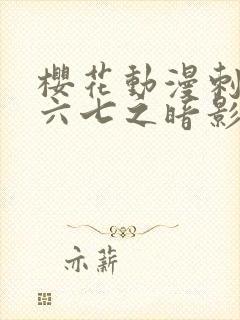 櫻花動漫刺
六七之暗影
亦薪